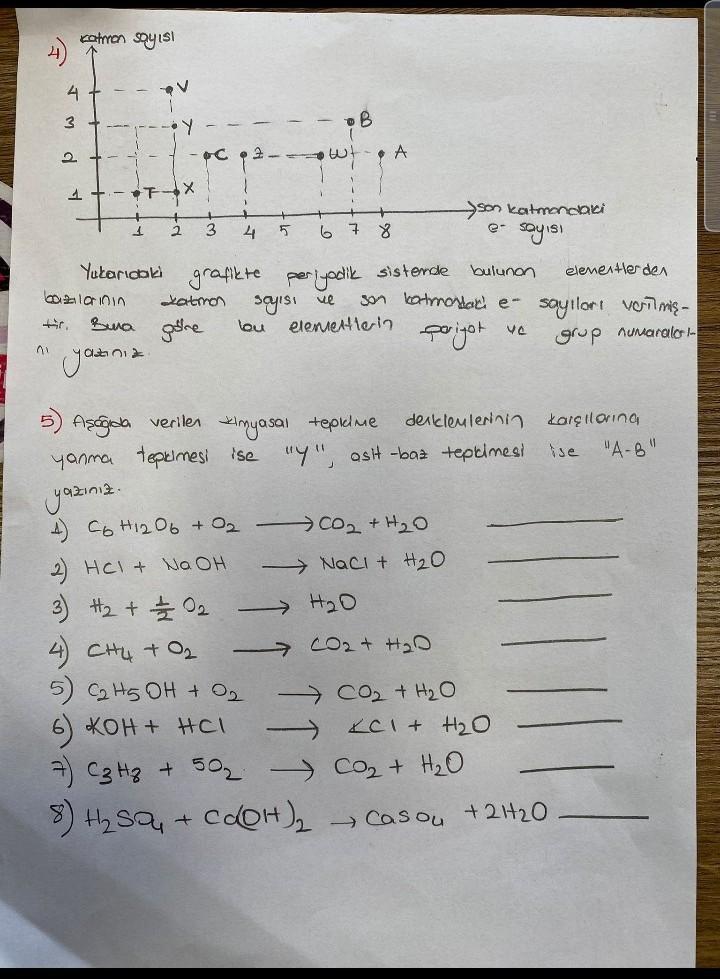 4) katman sayısı
4 V
3 Y B
2 C Z W A
1 T X
son katmandaki
1 2 3 4 5 6 7 8 e- sayısı
Yukarıdaki grafikte periyodik sistemde bulunan elementlerden
bazılarının katman sayısı ve son katmandaki e- sayıları verilmiş-
tir. Buna göre bu elementlerin periyot ve grup numaraları-
nı yazınız.
5) Aşağıda verilen kimyasal tepkime denklemlerinin karşılarına
yanma tepkimesi ise "Y", asit-baz tepkimesi ise "A-B"
yazınız.
1) C6H12O6 + O2 → CO2 + H2O
2) HCl + NaOH → NaCl + H2O
3) H2 + 1/2 O2 → H2O
4) CH4 + O2 → CO2 + H2O
5) C2H5OH + O2 → CO2 + H2O
6) KOH + HCl → KCl + H2O
7) C3H8 + 5O2 → CO2 + H2O
8) H2SO4 + Ca(OH)2 → CaSO4 + 2H2O